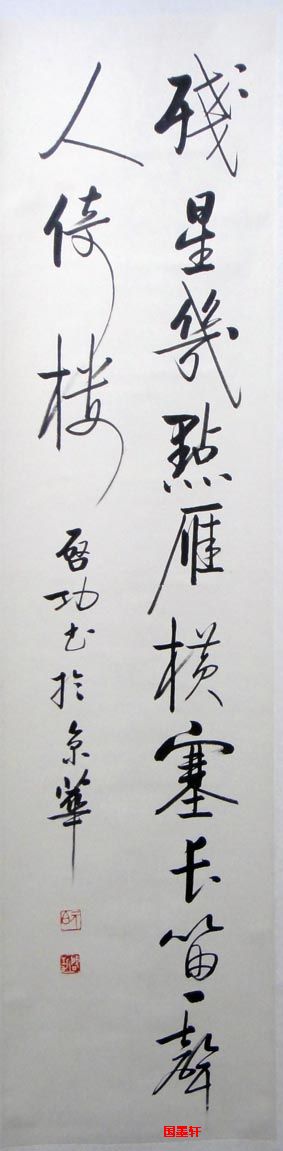 残星幾點雁横塞長笛一聲
人倚楼
啓功书於京華
国墨轩